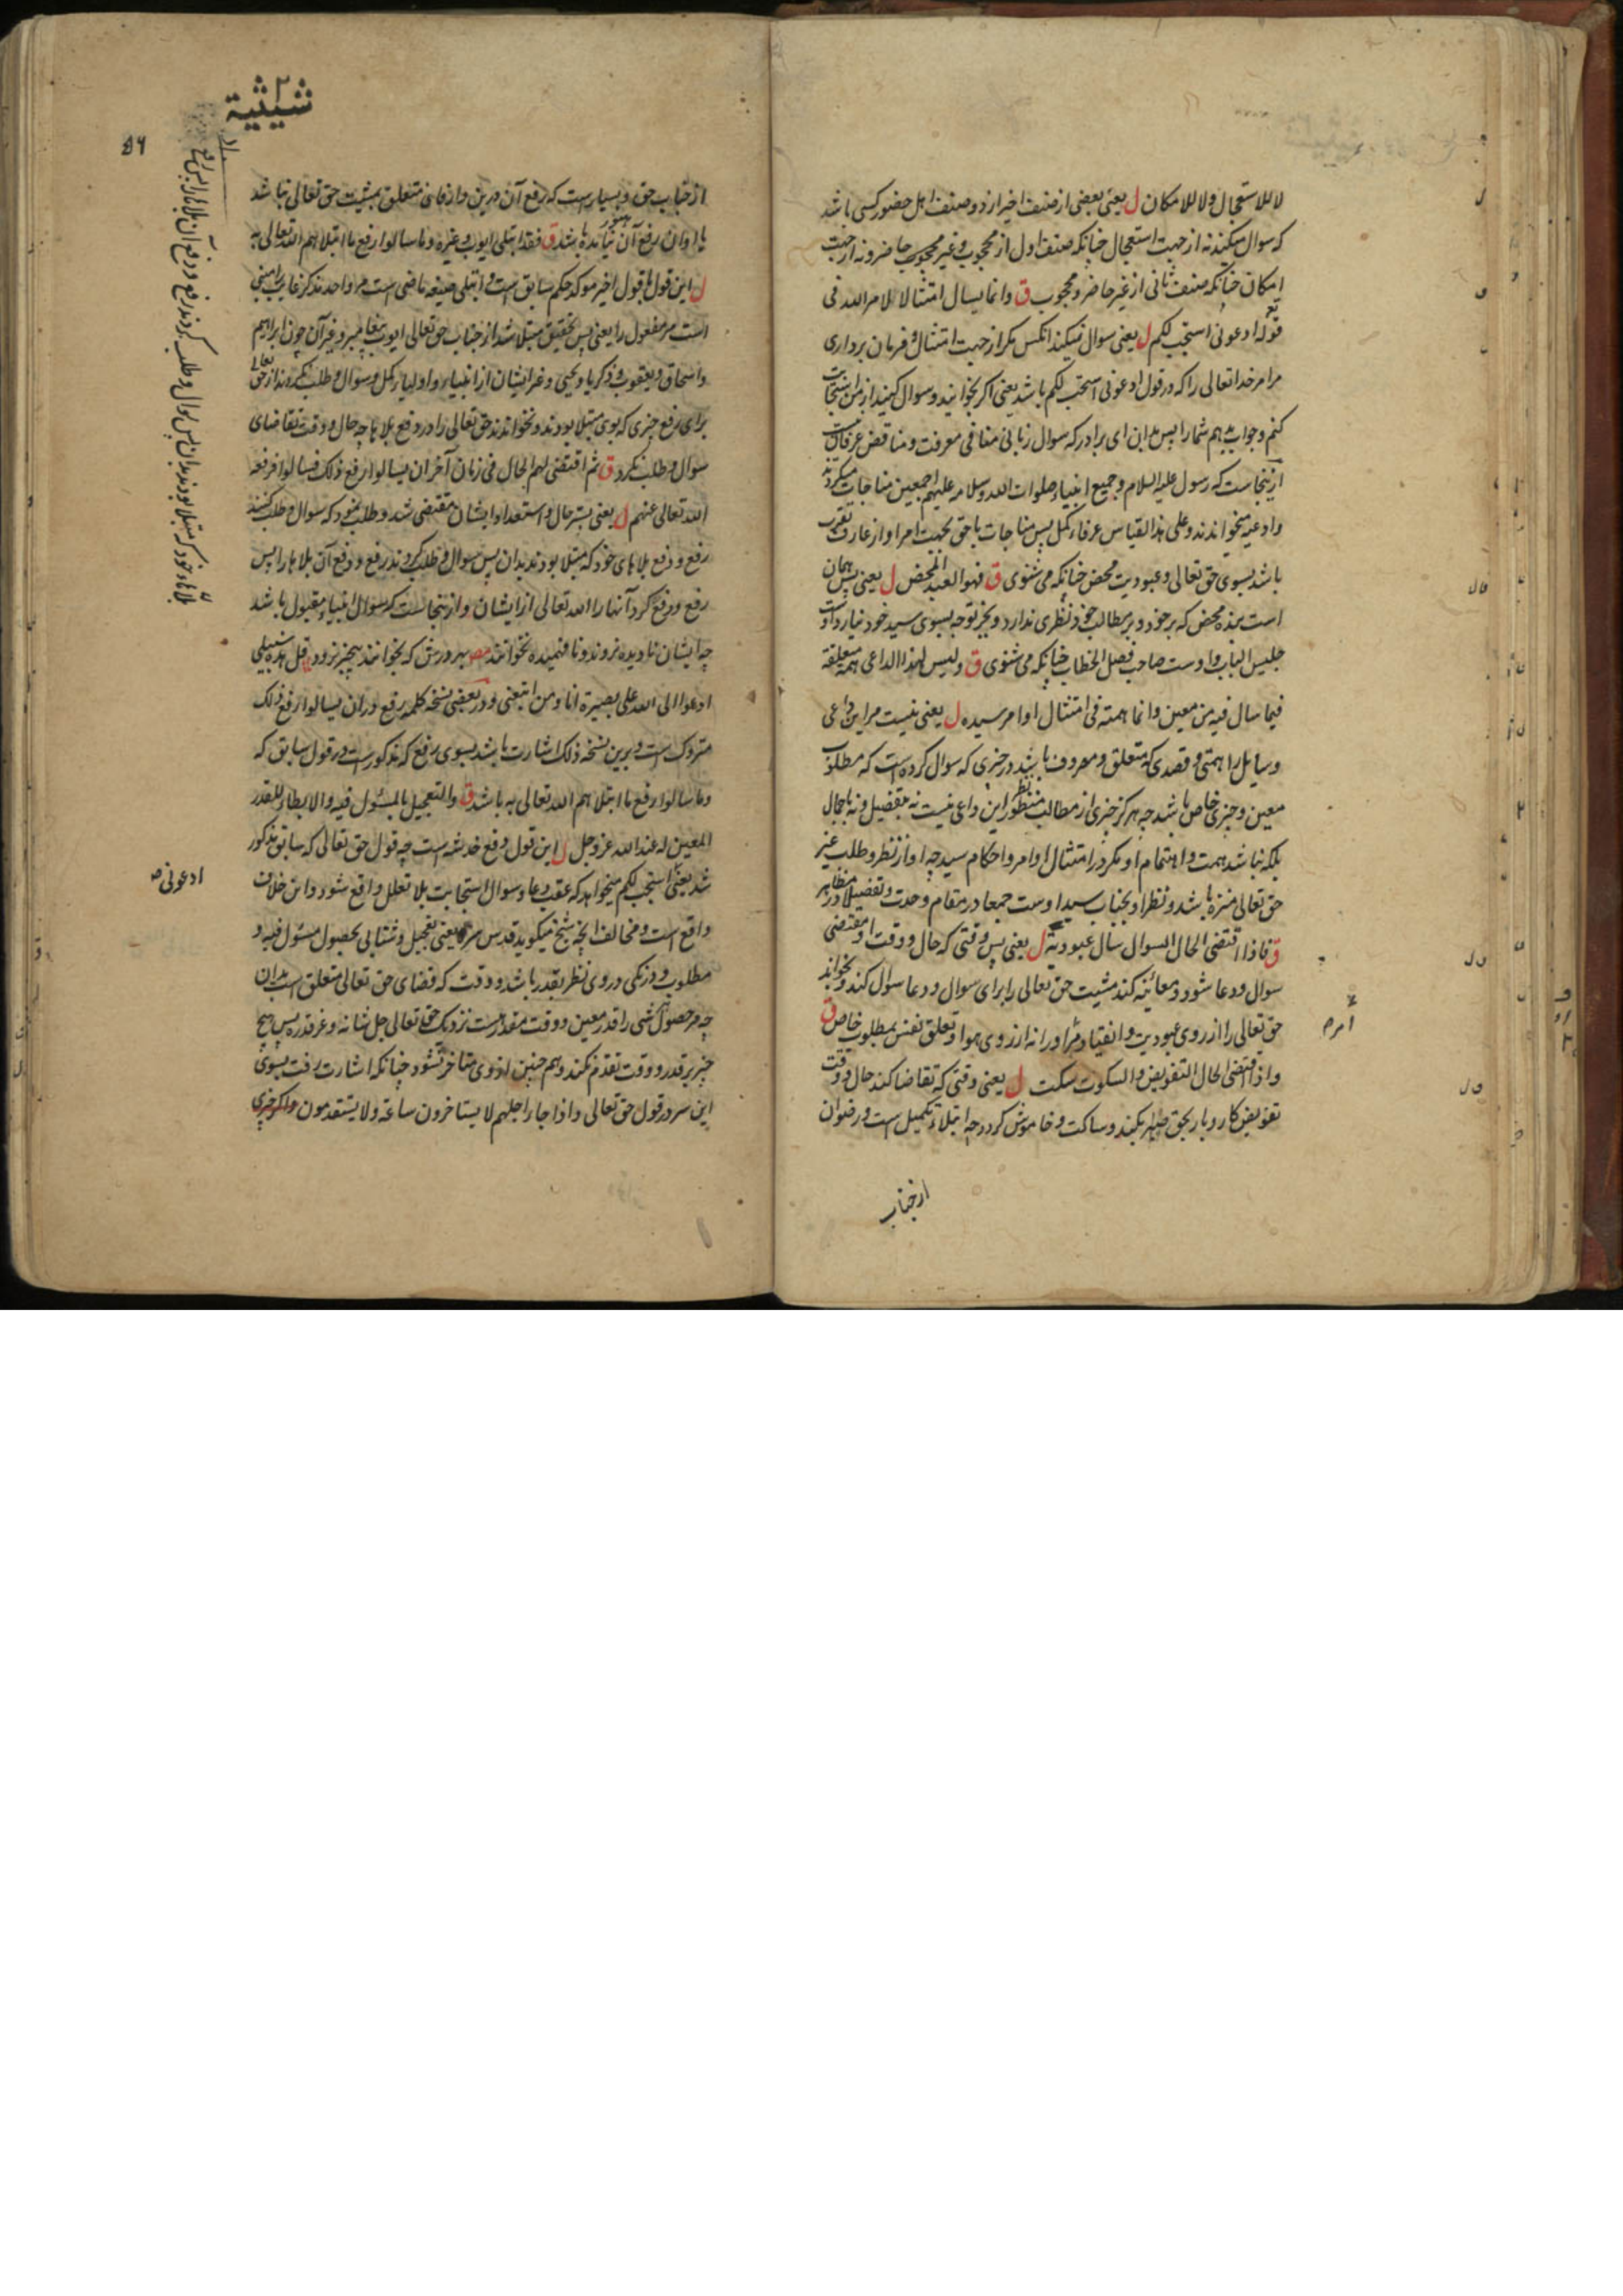 لا للاستعجال ولا للامكان ل یعنی بعضی از صنف اخیر از دو صنف اهل حضور کسی باشد
که سوال میکند نه از جهت استعجال چنانکه صنف اول از محجوب و غیر محجوب حاضر و نه از جهت
امکان چنانکه صنف ثانی از غیر حاضر و محجوب ق وانما یسال امتثالا لامر الله فی
قوله تع ادعونی استجب لکم ل یعنی سوال نمیکند انکس مکر از جهت امتثال و فرمان برداری
مر امر خدا تعالی را که در قول ادعونی استجب لکم باشد یعنی اکر بخوانید و سوال کنید از من استجابت
کنم و جواب بدهم شما را پس بدان ای برادر که سوال زبانی منافی معرفت و مناقض عرفان نیست
ازینجاست که رسول علیه السلام و جمیع انبیاء صلوات الله وسلامه علیهم اجمعین مناجات میکردند
و ادعیه میخواندند و علی هذا القیاس عرفاء کمل پس مناجات با حق بجهت امر او از عارف تقرب
باشد بسوی حق تعالی و عبودیت محض چنانکه می شنوی ق فهو العبد المحض ل یعنی پس همان
است بنده محض که بر خود و بر مطالب خود نظری ندارد و بجز توجه بسوی سید خود نیارد و او
جلیس الباب و اوست صاحب فصل الخطاب چنانکه می شنوی ق ولیس لهذا الداعی همة متعلقة
فیما سال فیه من معین وانما همته فی امتثال اوامر سیده ل یعنی نیست مر این داعی
وسایل را همتی و قصدی که متعلق و مصروف باشد در چیزی که سوال کرده است که مطلوب
معین و چیزی خاص باشد چه هرکز چیزی از مطالب منظور این داعی نیست نه بتفصیل و نه باجمال
بلکه نباشد همت و اهتمام او مکر در امتثال اوامر و احکام سید چه او از نظر و طلب غیر
حق تعالی منزه باشد و نظر او بجناب سید اوست جمعا در مقام وحدت و تفصیلا در مظاهر
ق فاذا اقتضی الحال السوال سال عبودیة ل یعنی پس وقتی که حال و وقت او مقتضی
سوال و دعا شود و معائنه کند مشیت حق تعالی را برای سوال و دعا سوال کند و بخواند
حق تعالی را از روی عبودیت و انقیاد مر او را نه از روی هوا و تعلق نفس بمطلوب خاص ق
واذا اقتضی الحال التفویض والسکوت سکت ل یعنی وقتی که تقاضا کند حال و وقت
تفویض کار و بار بحق صبر بکند و ساکت و خاموش کردد چه ابتلاء تکمیل است و رضوان
امره
از جناب
شیثیة
۲
۵۶
از جناب حق و بسیار است که رفع آن درین وا زمان متعلق بمشیت حق تعالی نباشد
یا اوان رفع آن هنوز نیامده باشد ق فقد ابتلی ایوب وغیره وما سالوا رفع ما ابتلاهم الله تعالی به
ل این قول با قول اخیر موکد حکم سابق است و ابتلی صیغه ماضی است مر واحد مذکر غایب مبنی
است مر مفعول را یعنی پس بتحقیق مبتلا شد از جناب حق تعالی ایوب پیغامبر و غیر آن چون ابراهیم
واسحاق و یعقوب و ذکریا و یحیی و غیر ایشان از انبیاء و اولیاء کمل و سوال و طلب نکردند از حق تعالی
برای رفع چیزی که بوی مبتلا بودند و نخواندند حق تعالی را در دفع بلاها چه حال و وقت تقاضای
سوال و طلب نکرد ق ثم اقتضی لهم الحال فی زمان آخر ان یسالوا رفع ذلک فسالوا فرفعه
الله تعالی عنهم ل یعنی پستر حال و استعداد ایشان مقتضی شد و طلب نمود که سوال و طلب کنند
رفع و دفع بلاهای خود که مبتلا بودند بدان پس سوال و طلب کردند رفع و دفع آن بلاها را پس
رفع و دفع کرد آنها را الله تعالی از ایشان و ازینجاست که سوال انبیاء مقبول باشد
چه ایشان نادیده نروند و نافهمیده نخوانند مص بهر درش که بخوانند بیخبر نرود قل هذه سبیلی
ادعوا الی الله علی بصیرة انا ومن اتبعنی و در بعضی نسخه کلمه رفع در ان یسالوا رفع ذلک
متروک است و برین نسخه ذلک اشارت باشد بسوی رفع که مذکور است در قول سابق که
وما سالوا رفع ما ابتلاهم الله تعالی به باشد ق والتعجیل بالمسئول فیه والابطاء للقدر
المعین له عند الله عز وجل ل این قول دفع خدشه است چه قول حق تعالی که سابق مذکور
شد یعنی استجب لکم میخواهد که عقب دعا و سوال استجابت بلا تعلل واقع شود و این خلاف
واقع است و مخالف آنچه شیخ میکوید قدس سره یعنی تعجیل و شتابی بحصول مسئول فیه و
مطلوب و درنکی در وی نظر بقدر باشد و وقت که قضای حق تعالی متعلق است بدان
چه مر حصول هر شی را قدر معین و وقت مقدر است نزدیک حق تعالی جل شانه و عز قدره پس هیچ
چیز بر قدر و وقت تقدم نکند و هم چنین از وی متاخر نشود چنانکه اشارت رفت بسوی
این سر در قول حق تعالی واذا جاء اجلهم لا یستاخرون ساعة ولا یستقدمون و اکر چیزی
ادعونی صه
بلاهاء خود که مبتلا بودند بدان پس سوال و طلب کردند رفع و دفع آن بلاها را پس رفع